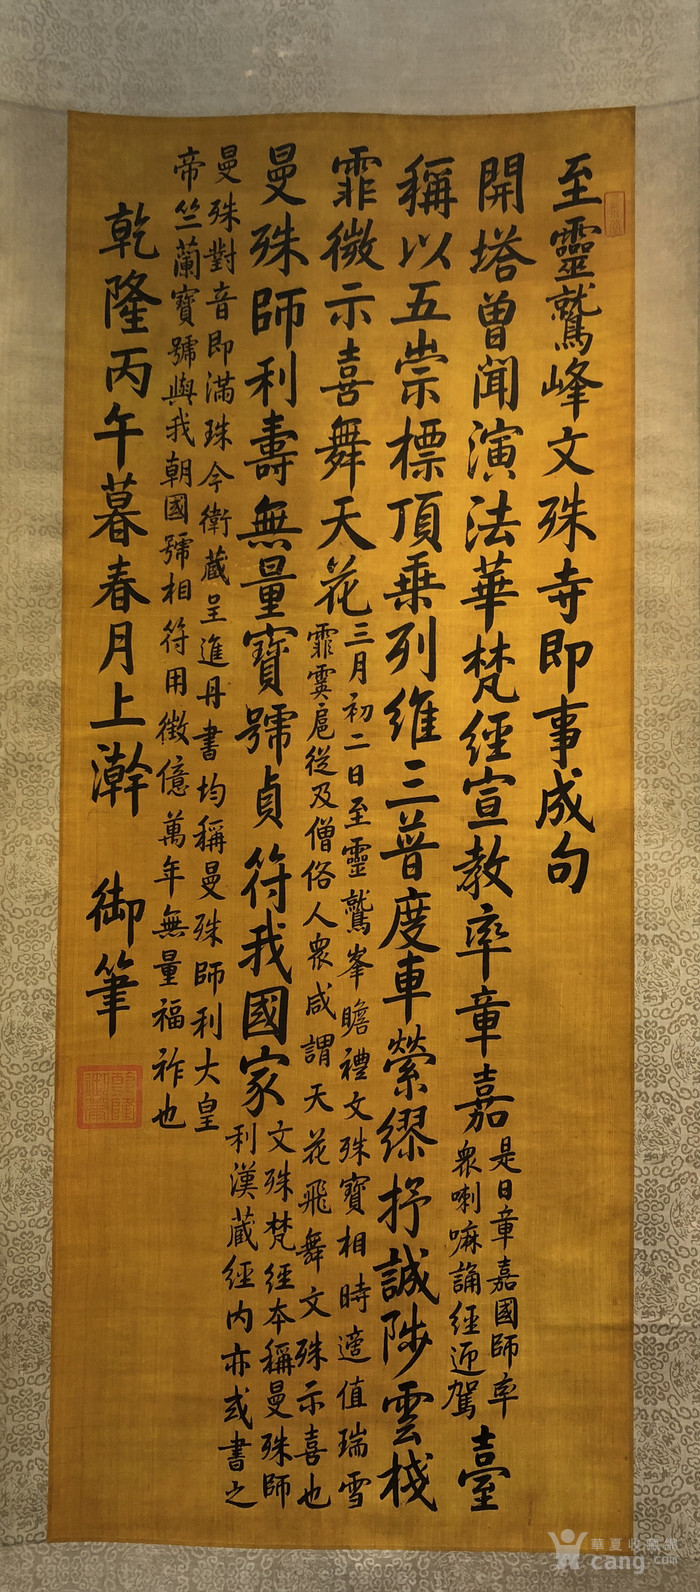 至靈鷲峰文殊寺即事成句
開塔曽聞演法華梵經宣教率章嘉
是日章嘉國師率
衆喇嘛誦經迎駕
臺
稱以五崇標頂乗列維三普度車縈繆抒誠陟雲棧
霏微示喜舞天花
三月初二日至靈鷲峯瞻禮文殊寶相時適值瑞雪
霏霙扈從及僧俗人衆咸謂天花飛舞文殊示喜也
曼殊師利壽無量寶號貞符我國家
文殊梵經本稱曼殊師
利漢藏經内亦或書之
曼殊對音即滿珠今衛藏呈進丹書均稱曼殊師利大皇
帝竺蘭寶號與我朝國號相符用徴億萬年無量福祚也
乾隆丙午暮春月上澣 御筆
華夏收藏網
cang.com